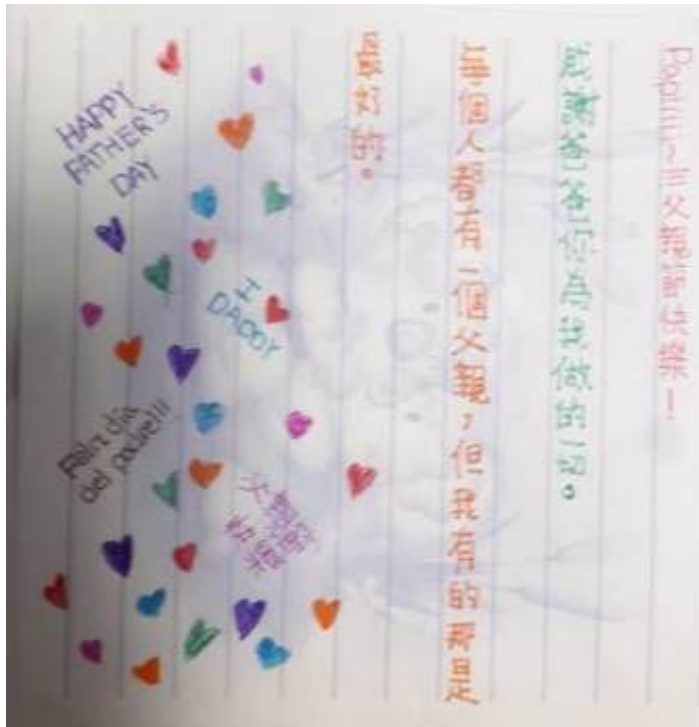 Papiiii~三父親節快樂！
感謝爸爸你為我做的一切。
每個人都有一個父親，但我有的那是
最好的。
HAPPY
FATHER'S
DAY
I
DADDY
Feliz día
del padre!!!
父親節
快樂